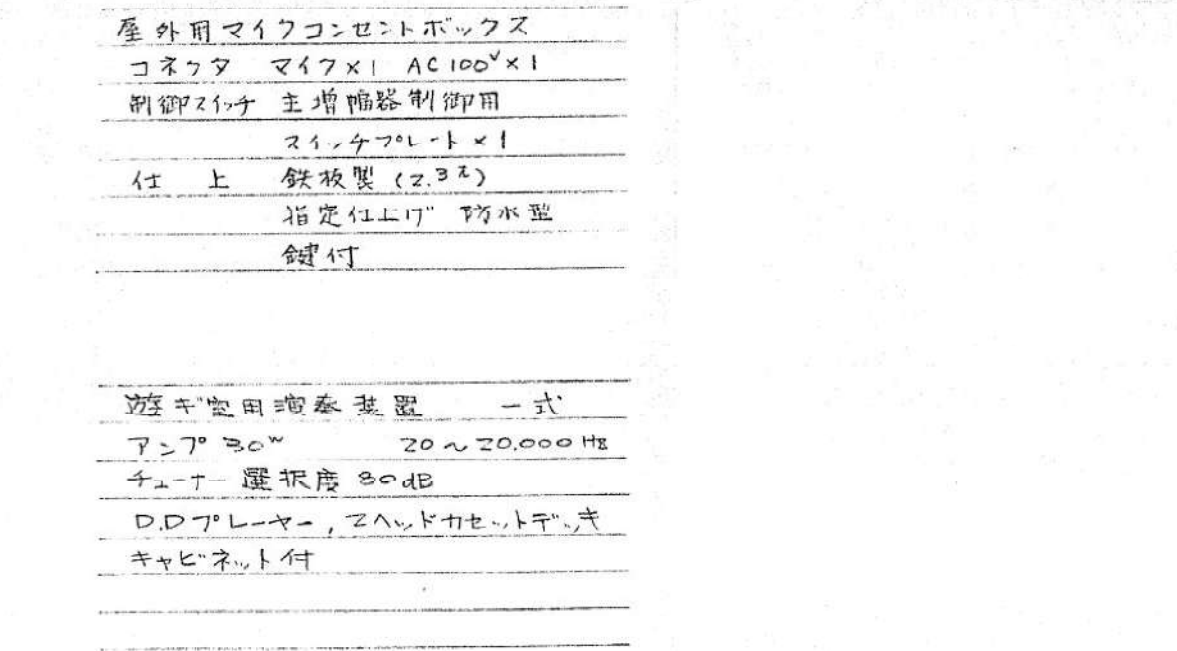 屋外用マイクコンセントボックス
コネクタ マイク×1 AC100V×1
制御スイッチ 主増幅器制御用
スイッチプレート×1
仕上 鉄板製(2.3t)
指定仕上げ 防水型
鍵付
遊ギ室用演奏装置 一式
アンプ30W 20~20.000Hz
チューナー選択度80dB
D.Dプレーヤー,2ヘッドカセットデッキ
キャビネット付